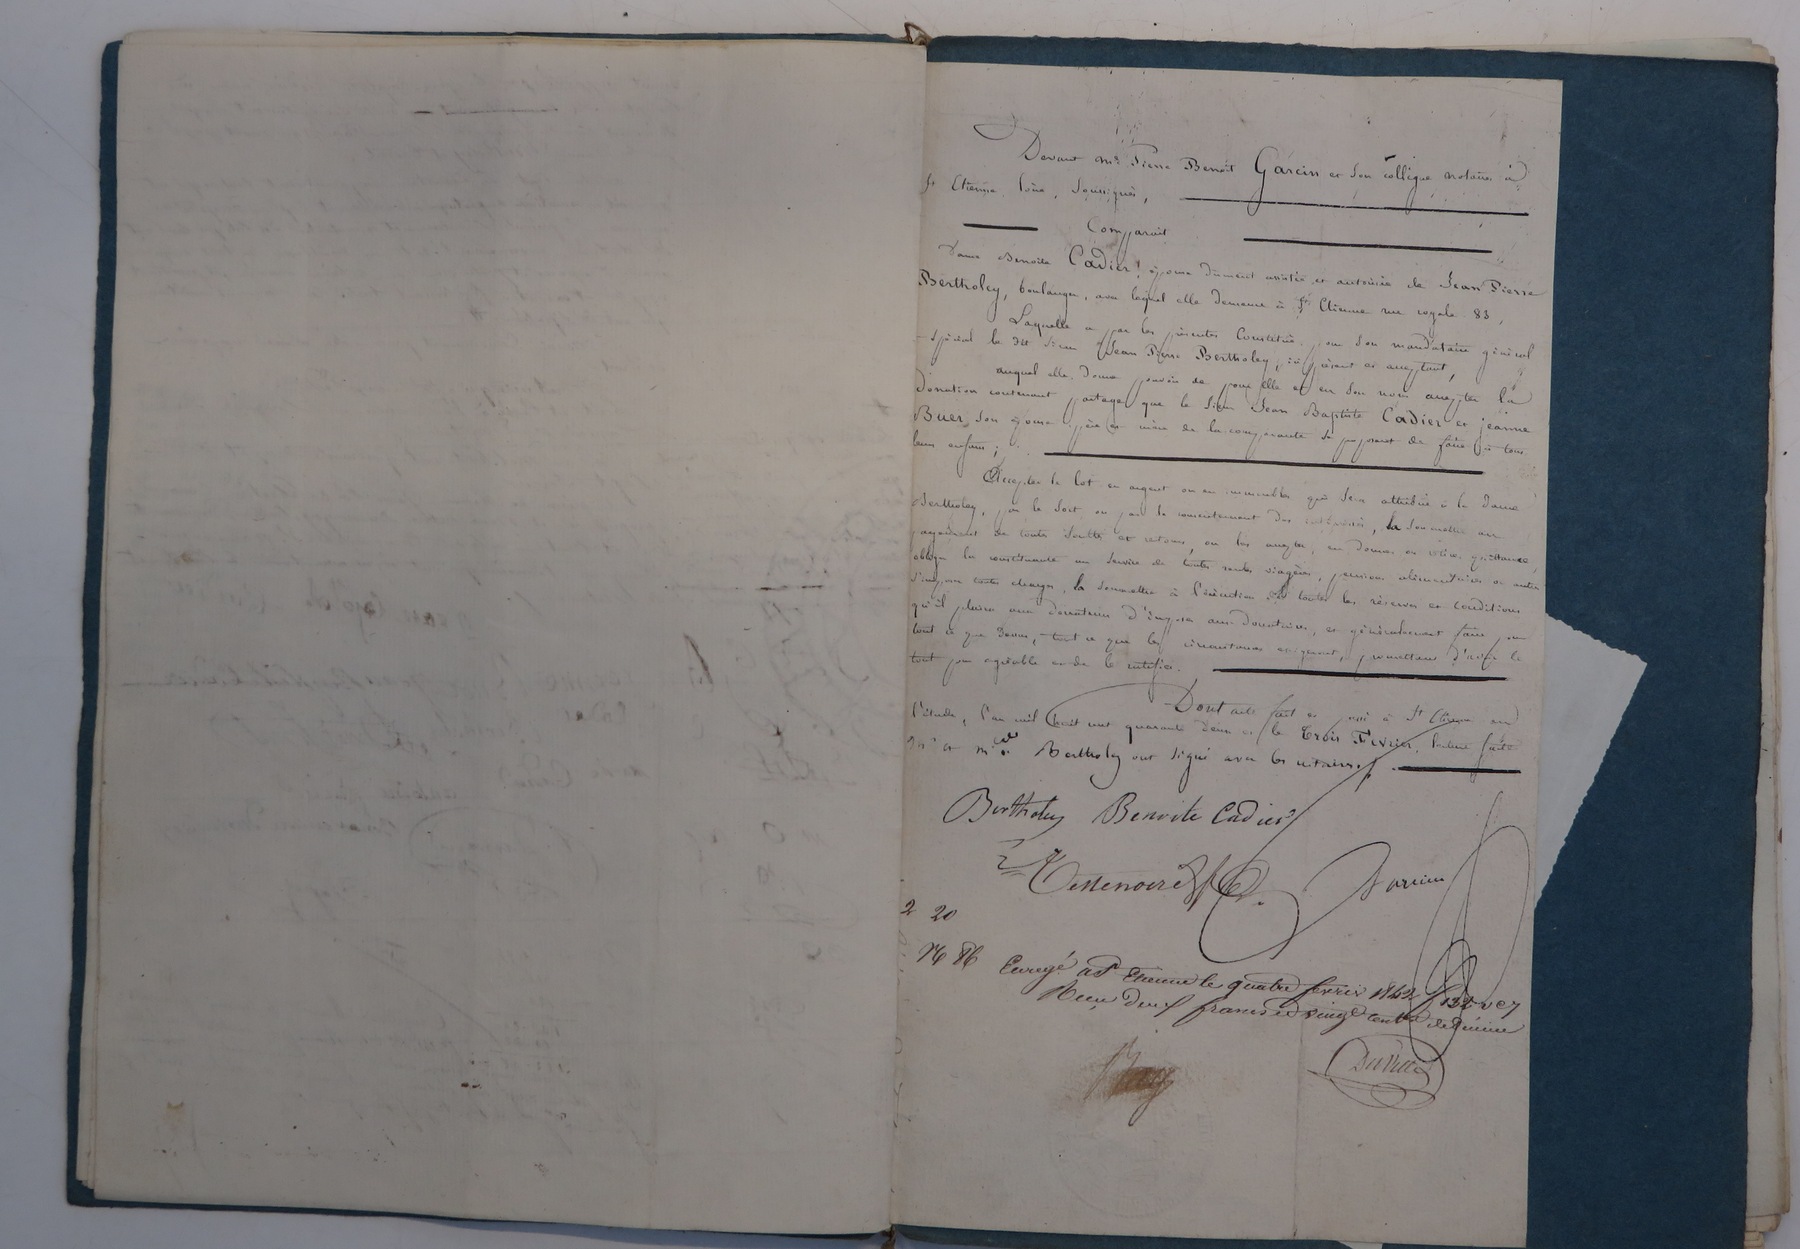 Devant me Pierre Benoit Garcin et son collègue notaires à
St Etienne, Loire, soussignés,
Comparait
Dame Benoite Cadier, épouse dument assistée et autorisée de Jean Pierre
Bertholey, boulanger, avec lequel elle demeure à St Etienne rue royale 83,
Laquelle a par les présentes constitué pour son mandataire général
spécial le dit sieur Jean Pierre Bertholey, ici présent et acceptant,
auquel elle donne pouvoir de pour elle et en son nom accepter la
donation contenant partage que le sieur Jean Baptiste Cadier et jeanne
Buer son épouse père et mère de la comparante se proposent de faire à tous
leurs enfans;
Accepter le lot en argent ou en immeubles qui sera attribué à la dame
Bertholey, par le sort ou par le consentement des intéressés, la soumettre au
payement de toutes soultes et retours, ou les accepter, en donner ou retirer quittance,
obliger la constituante au service de toutes rentes viagères, pensions alimentaires ou autres
s'imposer toutes charges, la soumettre à l'exécution de toutes les réserves et conditions
qu'il plaira aux donateurs d'imposer aux donataires, et généralement faire pour
tout ce que dessus, tout ce que les circonstances exigeront, promettant d'avoir le
tout pour agréable et de le ratifier.
Dont acte fait et passé à St Etienne en
l'étude, l'an mil huit cent quarante deux et le trois Février, lecture faite
Mr et me Bertholey ont signé avec les notaires.
Bertholey Benoite Cadier
Testenoire Garcin
2 20
Enregé à St Etienne le quatre février 1842
Reçu deux francs et vingt cent de décime